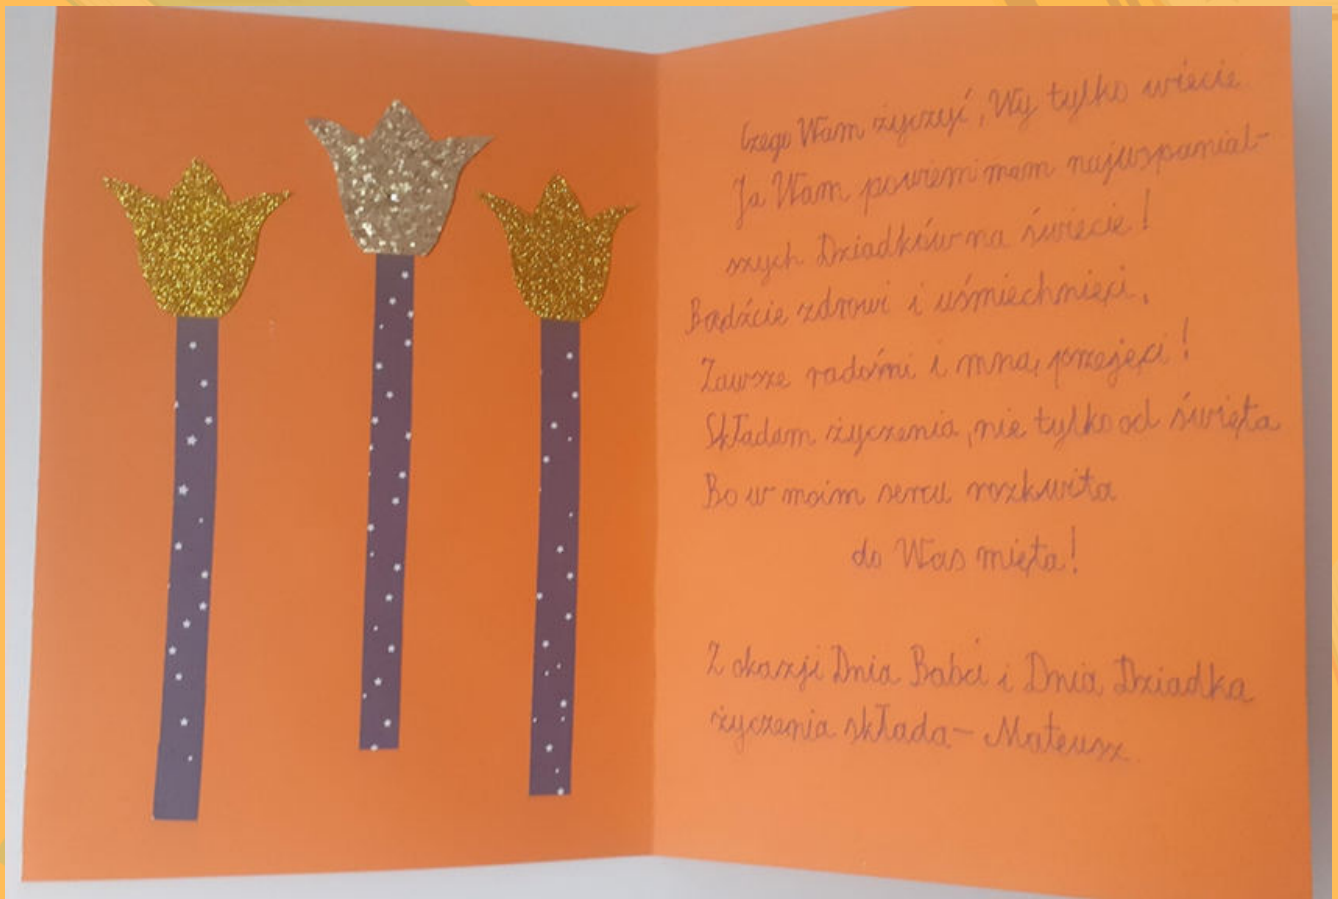 Czego Wam życzyć, Wy tylko wiecie
Ja Wam powiem mam najwspanial-
szych Dziadków na świecie!
Bądźcie zdrowi i uśmiechnięci,
Zawsze radośni i mną przejęci!
Składam życzenia, nie tylko od święta
Bo w moim sercu rozkwita
do Was mięta!
Z okazji Dnia Babci i Dnia Dziadka
życzenia składa - Mateusz.